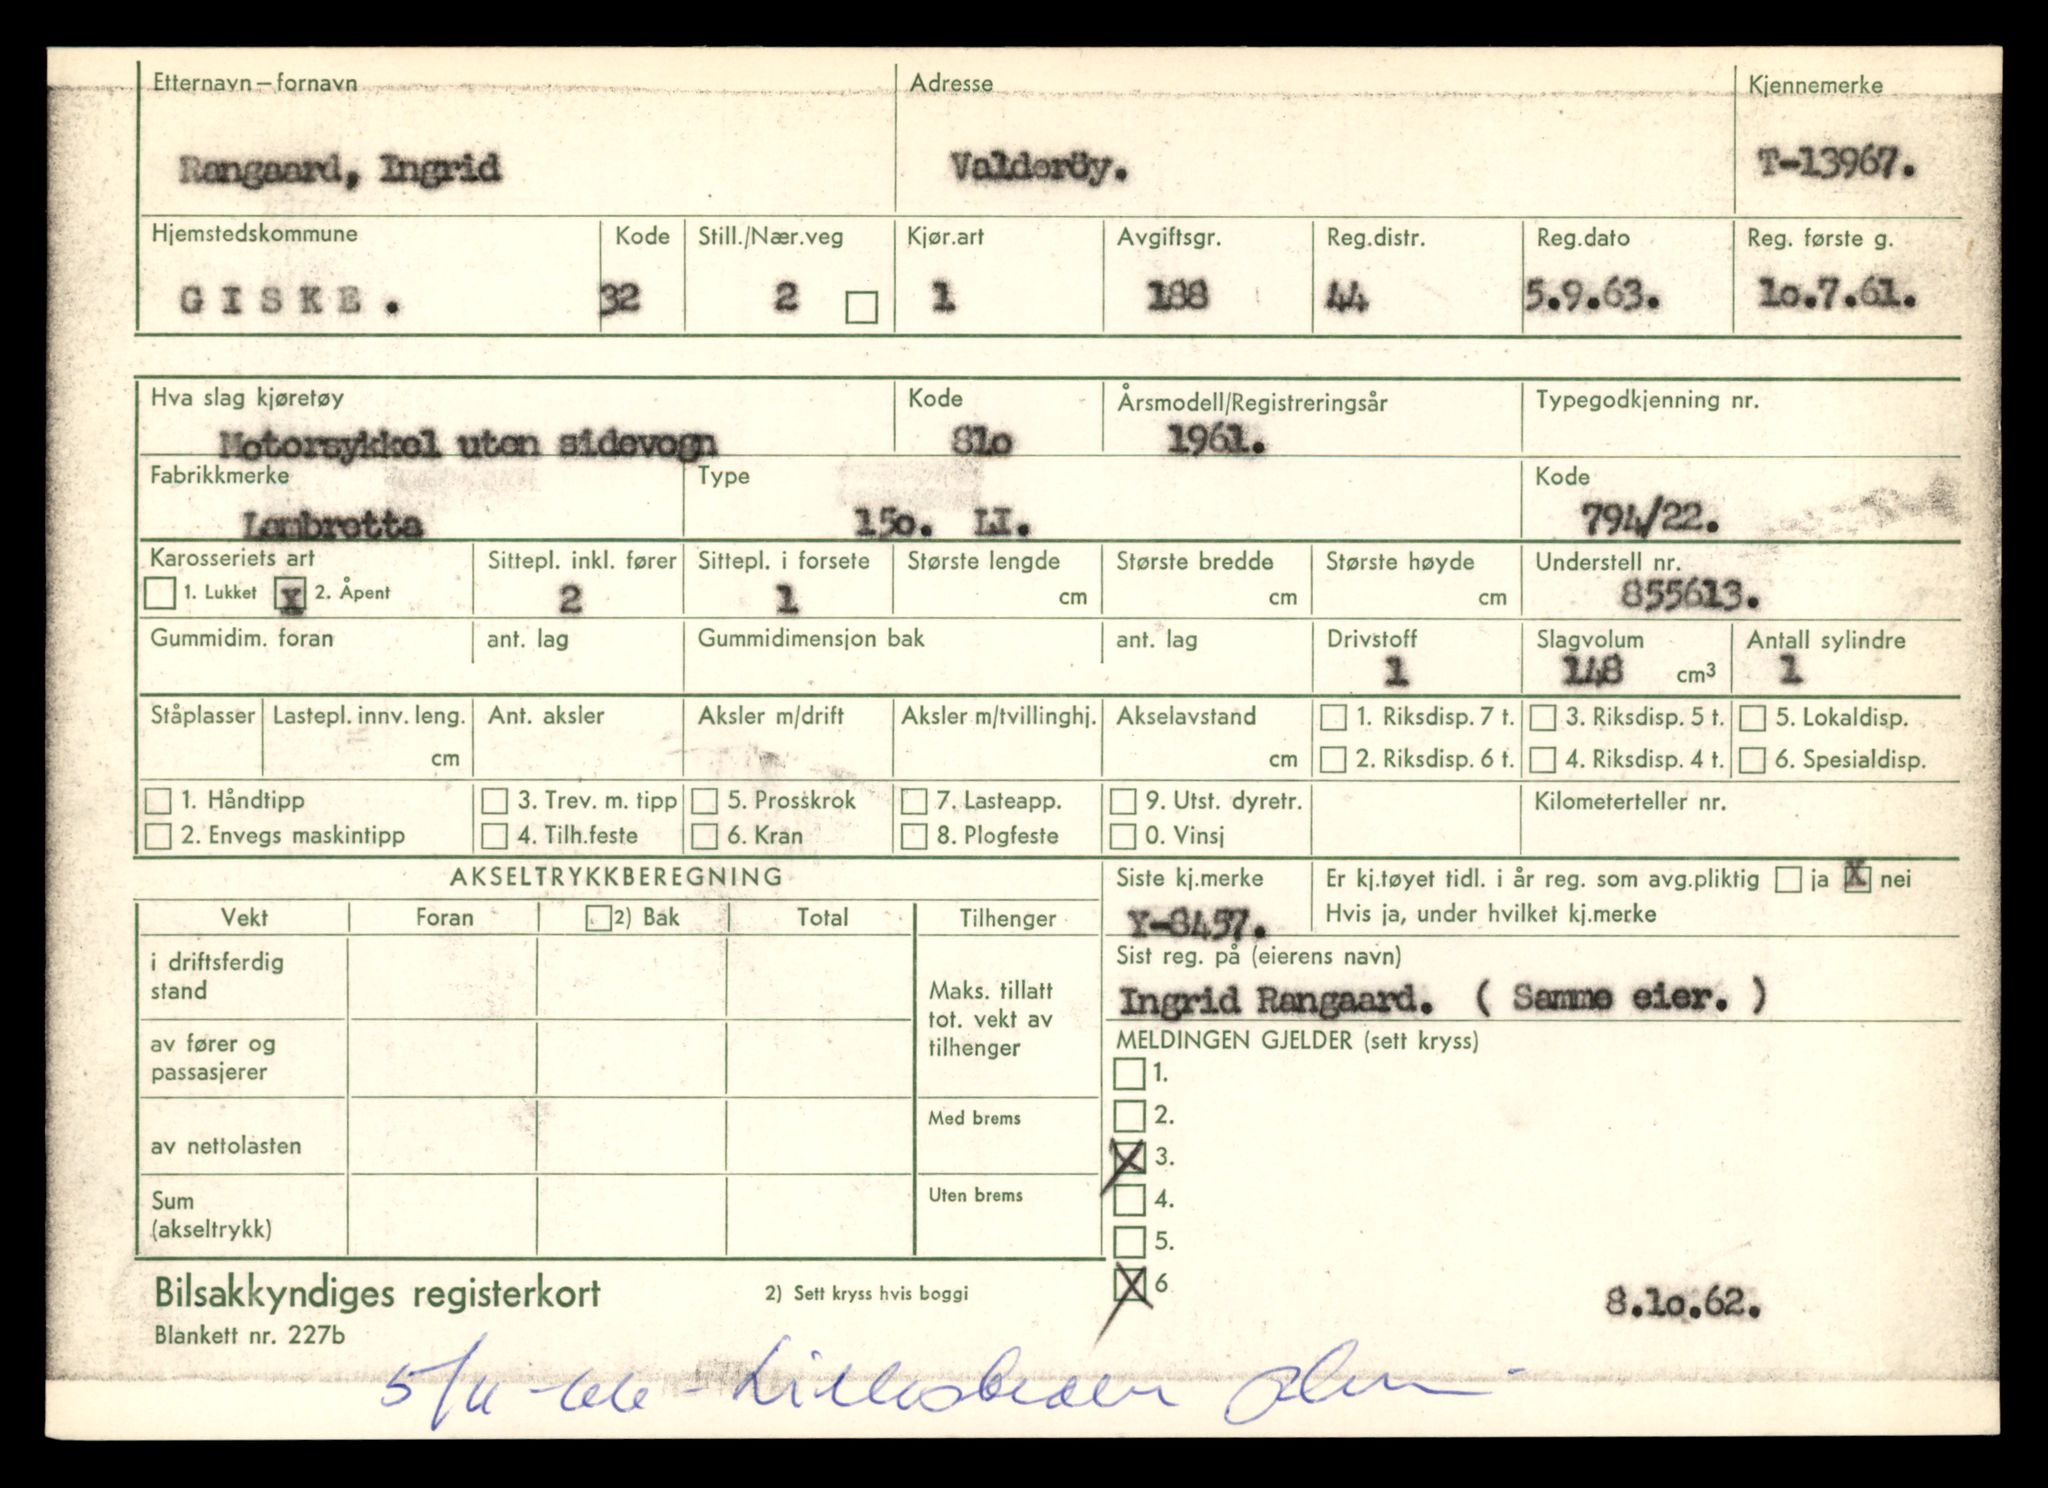 Etternavn–fornavn Adresse Kjennemerke
Rangaard, Ingrid Valderöy. T-13967.
Hjemstedskommune Kode Still./Nær.veg Kjør.art Avgiftsgr. Reg.distr. Reg.dato Reg. første g.
GISKE. 32 2 1 188 44 5.9.63. 1o.7.61.
Hva slag kjøretøy Kode Årsmodell/Registreringsår Typegodkjenning nr.
Motorsykkel uten sidevogn 81o 1961.
Fabrikkmerke Type Kode
Lambretta 15o. LI. 794/22.
Karosseriets art Sittepl. inkl. fører Sittepl. i forsete Største lengde Største bredde Største høyde Understell nr.
1. Lukket X 2. Åpent 2 1 cm cm cm 855613.
Gummidim. foran ant. lag Gummidimensjon bak ant. lag Drivstoff Slagvolum Antall sylindre
1 148 cm3 1
Ståplasser Lastepl. innv. leng. Ant. aksler Aksler m/drift Aksler m/tvillinghj. Akselavstand 1. Riksdisp. 7 t. 3. Riksdisp. 5 t. 5. Lokaldisp.
cm cm 2. Riksdisp. 6 t. 4. Riksdisp. 4 t. 6. Spesialdisp.
1. Håndtipp 3. Trev. m. tipp 5. Prosskrok 7. Lasteapp. 9. Utst. dyretr. Kilometerteller nr.
2. Envegs maskintipp 4. Tilh.feste 6. Kran 8. Plogfeste 0. Vinsj
AKSELTRYKKBEREGNING Siste kj.merke Er kj.tøyet tidl. i år reg. som avg.pliktig ja X nei
Vekt Foran 2) Bak Total Tilhenger Y-8457. Hvis ja, under hvilket kj.merke
i driftsferdig stand Sist reg. på (eierens navn)
Maks. tillatt tot. vekt av tilhenger Ingrid Rangaard. ( Samme eier. )
av fører og passasjerer MELDINGEN GJELDER (sett kryss)
1.
Med brems 2.
av nettolasten X 3.
Sum (akseltrykk) Uten brems 4.
5.
Bilsakkyndiges registerkort 2) Sett kryss hvis boggi X 6 8.1o.62.
Blankett nr. 227b